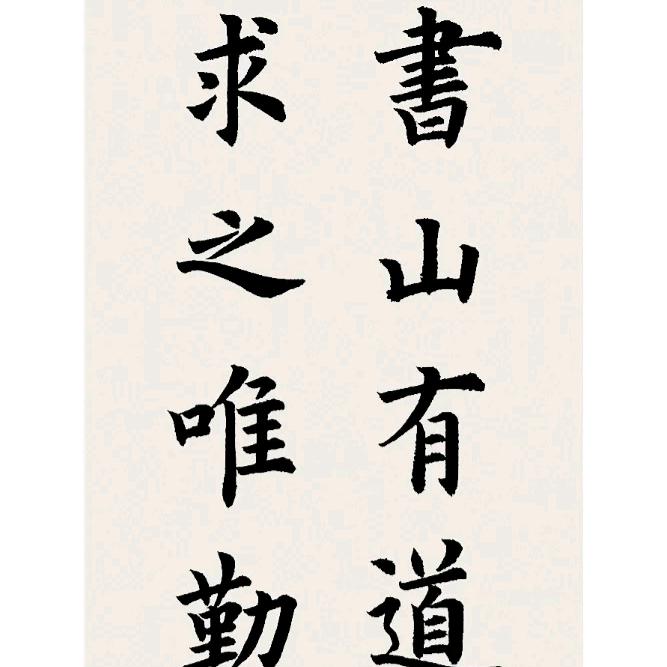 書山有道
求之唯勤